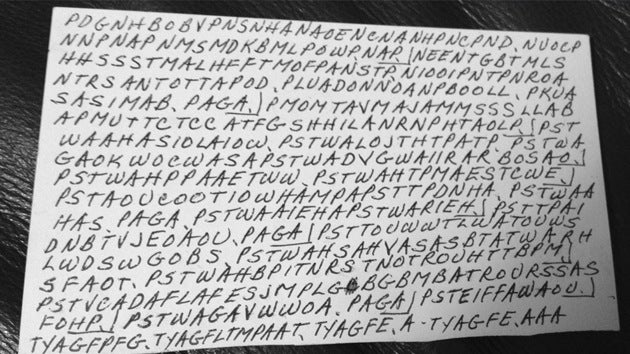 PDGNHBOBVPNSNHANAOENCNANHPNCPND, NUOCP
NNPNAPNMSMDKBMLPOWP, NAP.) NEENTGBTMLS
HHSSSTMALHFFTMOFPANSTP, NIOOIPNTPNROA
NTRSANTOTTAPOD, PLUADONNOANPBOOLL, PKUA
SASIMAB, PAGA.) PMOMTAVMAJAMMSSSLLAB
APMUTTCTCC ATFGSHHILANRNPHTAOLP.) PST
WAAHASIOLAIOW, PSTWALOJTHTPATP, PSTWA
GAOKWOCWASAPSTWADVGWAIIRAR, BOSAO.)
PSTWAHPPAAETWW, PSTWAHTPMAESTCWE.)
PSTAOUCOOTIOWHAMPAPSTTPDNHA, PSTWAA
HAS, PAGA, PSTWAAIEHAPSTWARIEH.) PSTTPAI
DNBTVJEOAOU, PAGA.) PSTTOUWWTLWATOUWS
LWDSWGOBS, PSTWAHSAHVASASBTATWARH
SFAOT, PSTWAHBPITNRS, TNOTROUHTTBPM.)
PSTVCADAFLAFESJMPLG BGBMBATROURSSAS
FOHP.) PSTWAGAVWWOA, PAGA.) PSTEIFFAWAOU.)
TYAGFPFG, TYAGFLTMPAAT, TYAGFE, A-TYAGFE, AAA